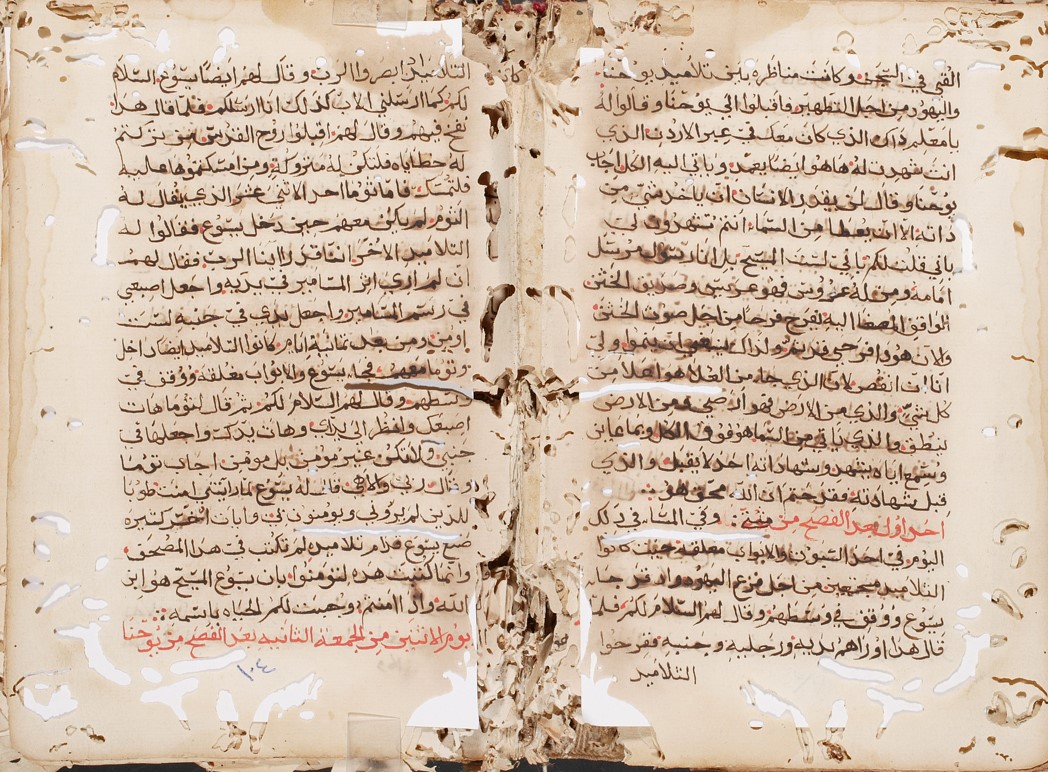 القي في السجن وكانت مناظره بين تلاميذ يوحنا
واليهود من اجل التطهير فاقبلوا الي يوحنا وقالوا له
يا معلم ذاك الذي كان معك في عبر الاردن الذي
انت شهدت له ها هو ايضا يعمد وياتي اليه الكل اجاب
يوحنا وقال لن يقدر الانسان ان ياخذ شي من
ذاته الا ان يعطا من السماء انتم تشهدون لي
باني قلت لكم باني لست المسيح بل انا رسول مرسل
امامه ومن له عروس فهو عريس وصديق الختن
الواقف المصغا اليه يفرح فرحا من اجل صوت الختن
والان هوذا فرحي قد تم ولذاك ينبغي ان ينمو ولي
انا ان انقص لان الذي جا من العلا هو اعلا من
كل شي والذي من الارض فهو ارضي ومن الارض
ينطق والذي ياتي من السما هو فوق الكل وبما عاين
وسمع اياه يشهد وشهادته احد لا يقبل والذي
قبل شهادته فقد ختم ان الله محق هو
احد اول بعد الفصح من متي وفي المسا في ذلك
اليوم في احد السبوت والابواب مغلقه حيث كانوا
التلاميذ مجتمعين من اجل فزع اليهود واذ قد جا
يسوع ووقف في وسطهم وقال لهم السلام لكم فلما
قال هذا اوراهم يديه ورجليه وجنبه ففرحوا
التلاميذ
التلاميذ اذ ابصروا الرب وقال لهم ايضا يسوع السلام
لكم كما ارسلني الاب كذلك انا ارسلكم فلما قال هذا
نفخ فيهم وقال لهم اقبلوا روح القدس من تركتم
له خطاياه فلتكن له متروكة ومن امسكتموها عليه
فلتمسك فاما توما احد الاثني عشر الذي يقال له
التوم لم يكن معهم حين دخل يسوع فقالوا له
التلاميذ الاخر اننا قد راينا الرب فقال لهم
ان لم اري اثر المسامير في يديه واجعل اصبعي
في رسم المسامير واجعل يدي في جنبه لست
اومن ومن بعد ثمانية ايام كانوا التلاميذ ايضا داخل
وتوما معهم فجا يسوع والابواب مغلقه ووقف في
وسطهم وقال لهم السلام لكم ثم قال لتوما هات
اصبعك وانظر الى يداي وهات يدك واجعلها في
جنبي ولا تكن غير مومن بل مومن اجاب توما
وقال ربي والاهي قال له يسوع لما رايتني امنت طوبا
للذين لم يروني ويومنون بي وايات اخر كثيره
صنع يسوع قدام تلاميذه لم تكتب في هذا المصحف
وانما كتبت هذه لتومنوا بان يسوع المسيح هو ابن
الله واذا امنتم وجبت لكم الحياه باسمه
يوم الاثنين من الجمعه الثانيه بعد الفصح من يوحنا
١٠٤